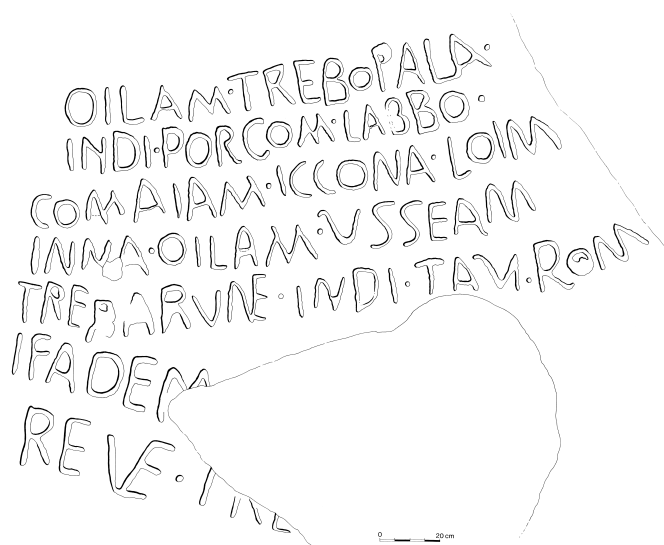 OILAM·TREBOPALA·
INDI·PORCOM·LABBO·
COMAIAM·ICCONA·LOIM
INNA·OILAM·VSSEAM
TREBARVNE·INDI·TAV·ROM
IFADEM
REVE·TRE
0 20 cm